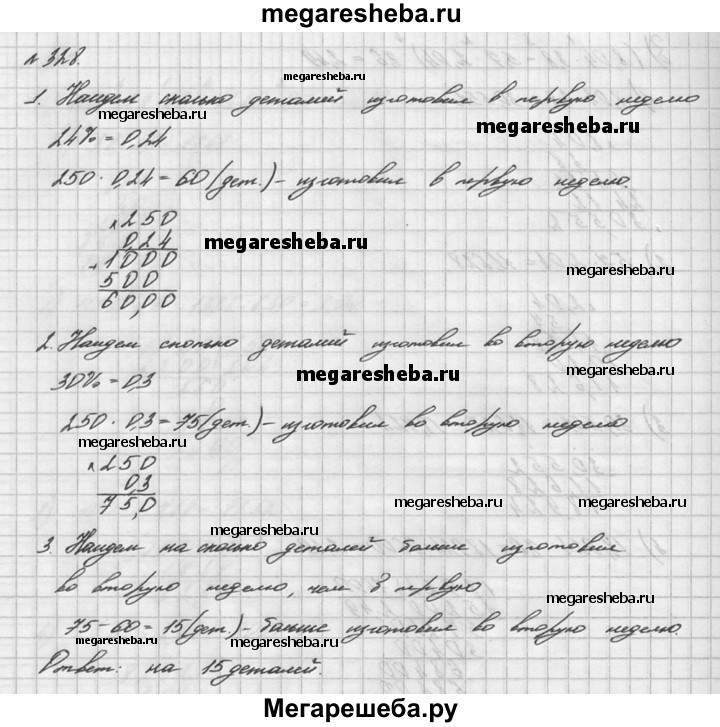 megaresheba.ru
№ 328.
megaresheba.ru
1. Найдем сколько деталей изготовил в первую неделю
megaresheba.ru
24% = 0,24
megaresheba.ru
250 · 0,24 = 60 (дет.) – изготовил в первую неделю.
× 250
0,24
megaresheba.ru
+ 1000
megaresheba.ru
500
60,00
2. Найдем сколько деталей изготовил во вторую неделю
30% = 0,3
megaresheba.ru
250 · 0,3 = 75 (дет.) – изготовил во вторую неделю
megaresheba.ru
× 250
0,3
75,0
megaresheba.ru
megaresheba.ru
megaresheba.ru
3. Найдем на сколько деталей больше изготовил
во вторую неделю, чем в первую
megaresheba.ru
75 – 60 = 15 (дет.) – больше изготовил во вторую неделю.
megaresheba.ru
megaresheba.ru
Ответ: на 15 деталей.
megaresheba.ru
Мегарешеба.ру